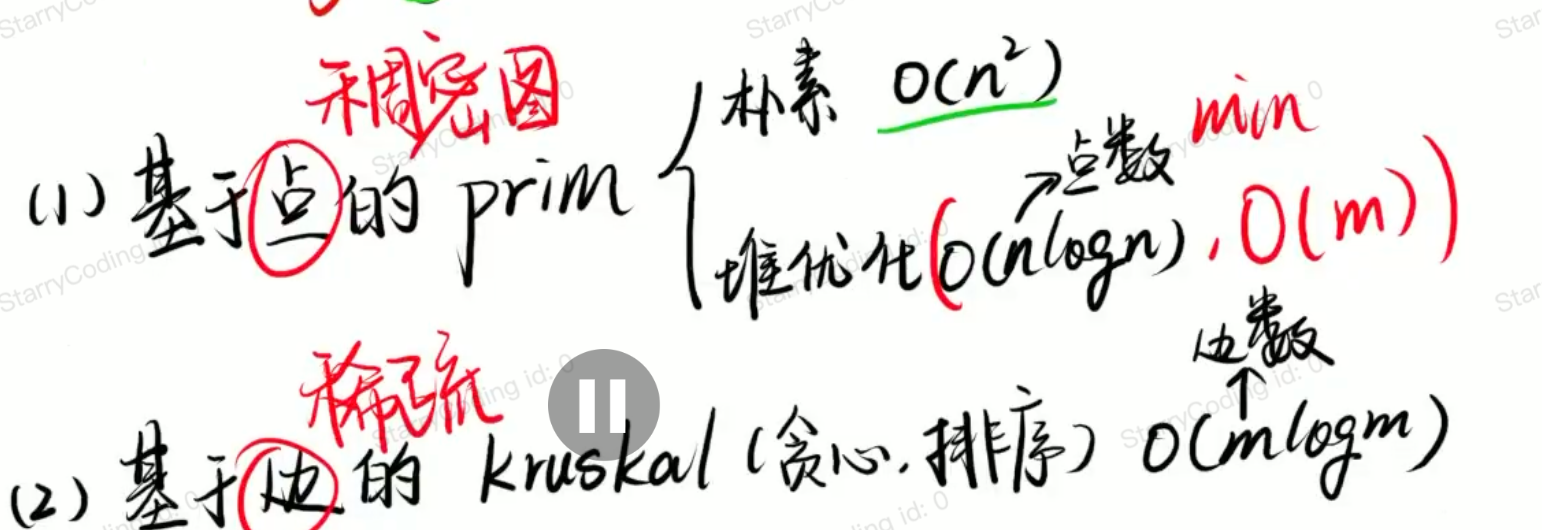 稠密图
(1) 基于点的 prim
朴素 O(n²)
点数 min
堆优化(O(nlogn), O(m))
边数
稀疏
(2) 基于边的 kruskal (贪心, 排序) O(mlogm)
StarryCoding id: 0